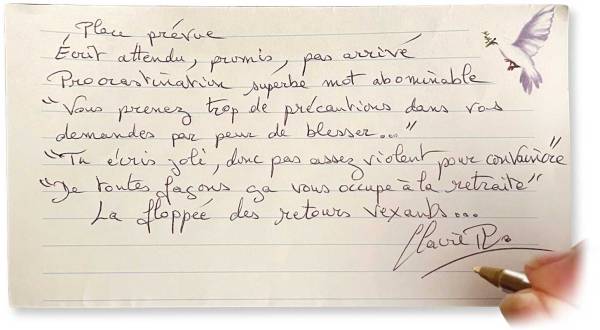 Place prévue
Écrit attendu, promis, pas arrivé
Procrastination superbe mot abominable
"Vous prenez trop de précautions dans vos
demandes par peur de blesser..."
"Tu écris joli, donc pas assez violent pour convaincre"
"De toutes façons ça vous occupe à la retraite"
La floppée des retours vexants...
Flavie